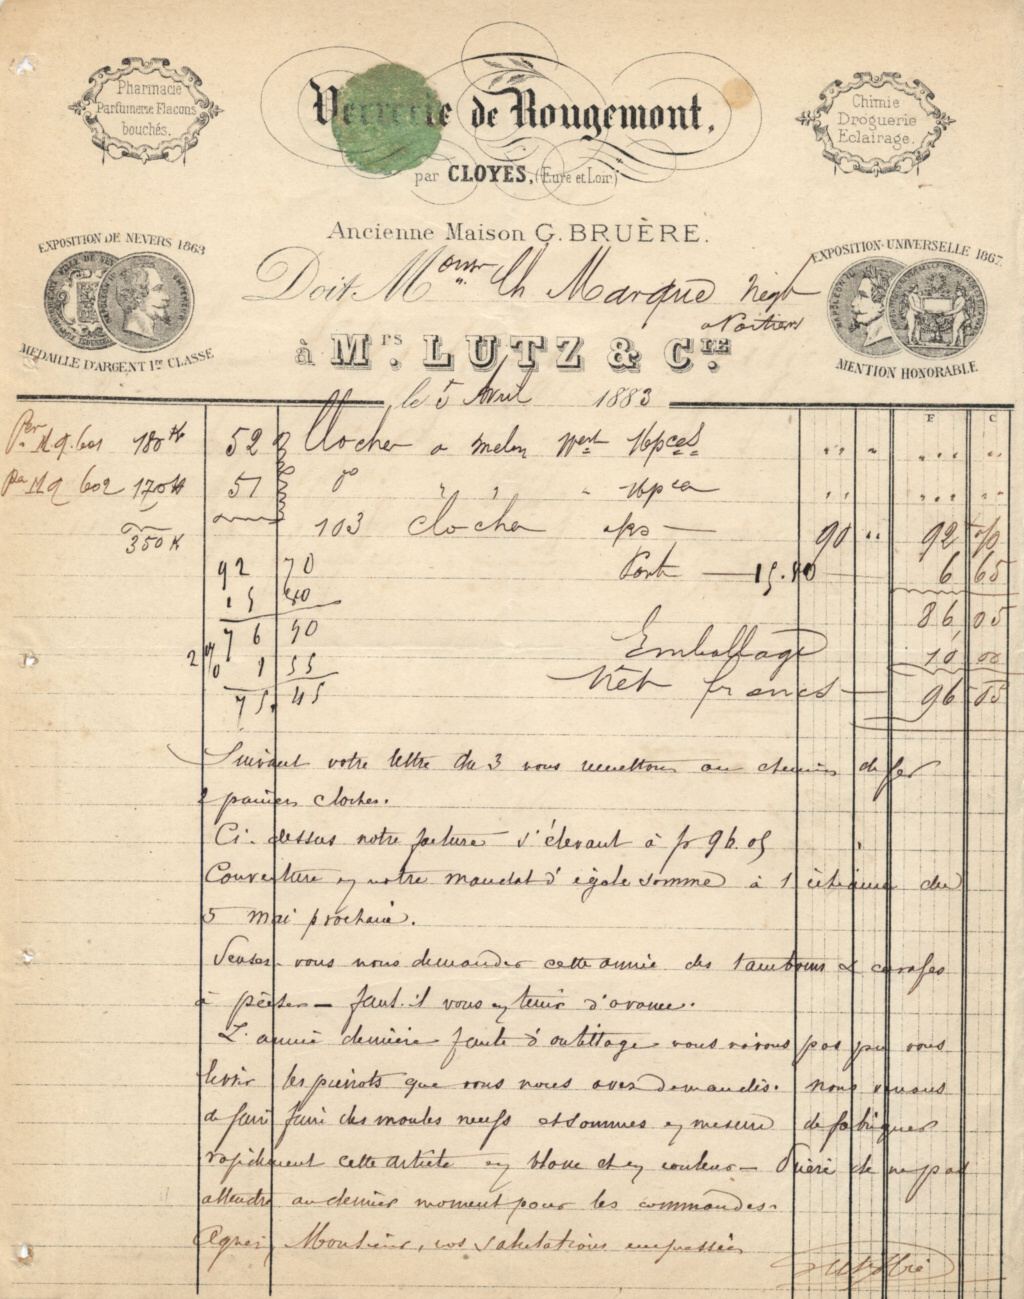 Pharmacie
Parfumerie Flacons
bouchés.
Verrerie de Rougemont,
Chimie
Droguerie
Eclairage.
par CLOYES, (Eure et Loir)
Ancienne Maison G. BRUÈRE.
EXPOSITION DE NEVERS 1863
MÉDAILLE D'ARGENT 1re CLASSE
EXPOSITION UNIVERSELLE 1867
MENTION HONORABLE
Doit Monsr Ch Marque Négt
à Mrs. LUTZ & CIE.
le 5 Avril 1883
F C
M.Q. 601 180 K 52 Cloches a melon
M Q 602 170 K 51
350 K 103 Cloches 90 " 92 70
92 70 Port 15.80 6 65
15 80 86 05
76 90 Emballage 10 00
2 % 1 55 Net francs 96 05
75. 45
Suivant votre lettre du 3 vous remettons au chemin de fer
2 paniers cloches.
Ci-dessus notre facture s'élevant à fr 96.05
Couverture en notre mandat d'égale somme à l'échéance du
5 mai prochain.
vous nous demander cette année des tambours & carafes
à pêcher - faut-il vous en tenir d'avance.
L'année dernière faute d'outillage nous n'avons pas pu vous
livrer les pierrots que vous nous avez demandés. nous venons
de faire faire des moules neufs et sommes en mesure de fabriquer
rapidement cette article en blanc et en couleur - Prière de ne pas
attendre au dernier moment pour les commandes.
Agréez, Monsieur, nos salutations empressées
Lutz & Cie